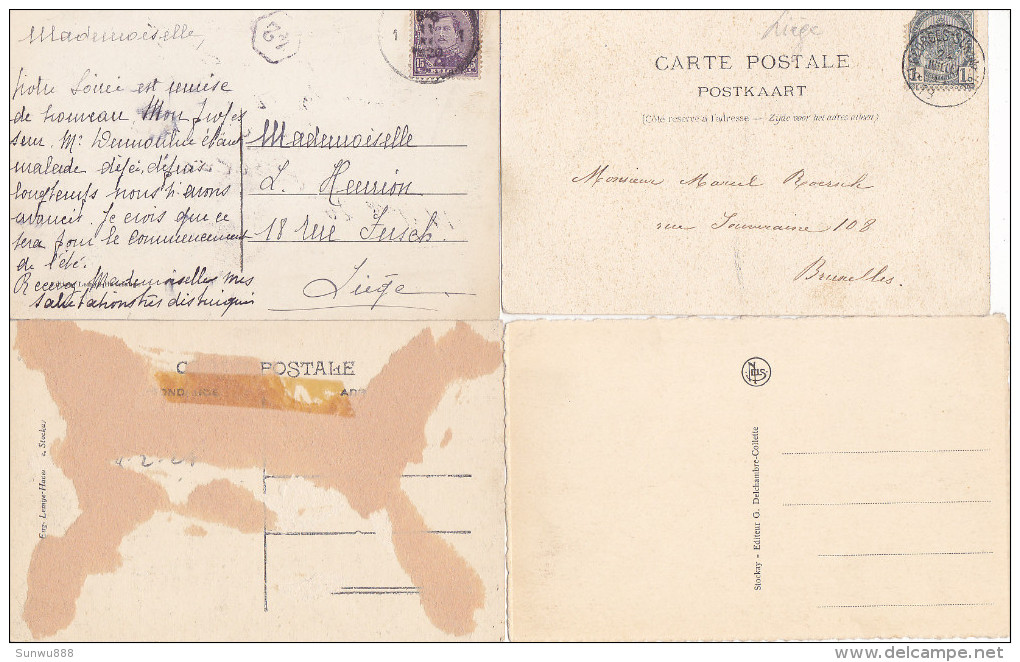 Mademoiselle,
Notre Soirée est remise
de nouveau Mon profes
seur Mr Demoulin étant
malade déjà, depuis
longtemps nous n'avons
avancé. Je crois que ce
sera pour le commencement
de l'été.
Recevez Mademoiselle mes
salutations très distingués
12
15
Mademoiselle
L. Henrion
18 rue
Liège
Liège
CARTE POSTALE
POSTKAART
(Côté réservé à l'adresse — Zijde voor het adres alleen)
1 c 1 c
Monsieur Marcel Roersch
rue Souveraine 108
Bruxelles.
C POSTALE
Stockay
Stockay - Editeur G. Delchambre-Collette
Sunwu888
www.delcampe.net